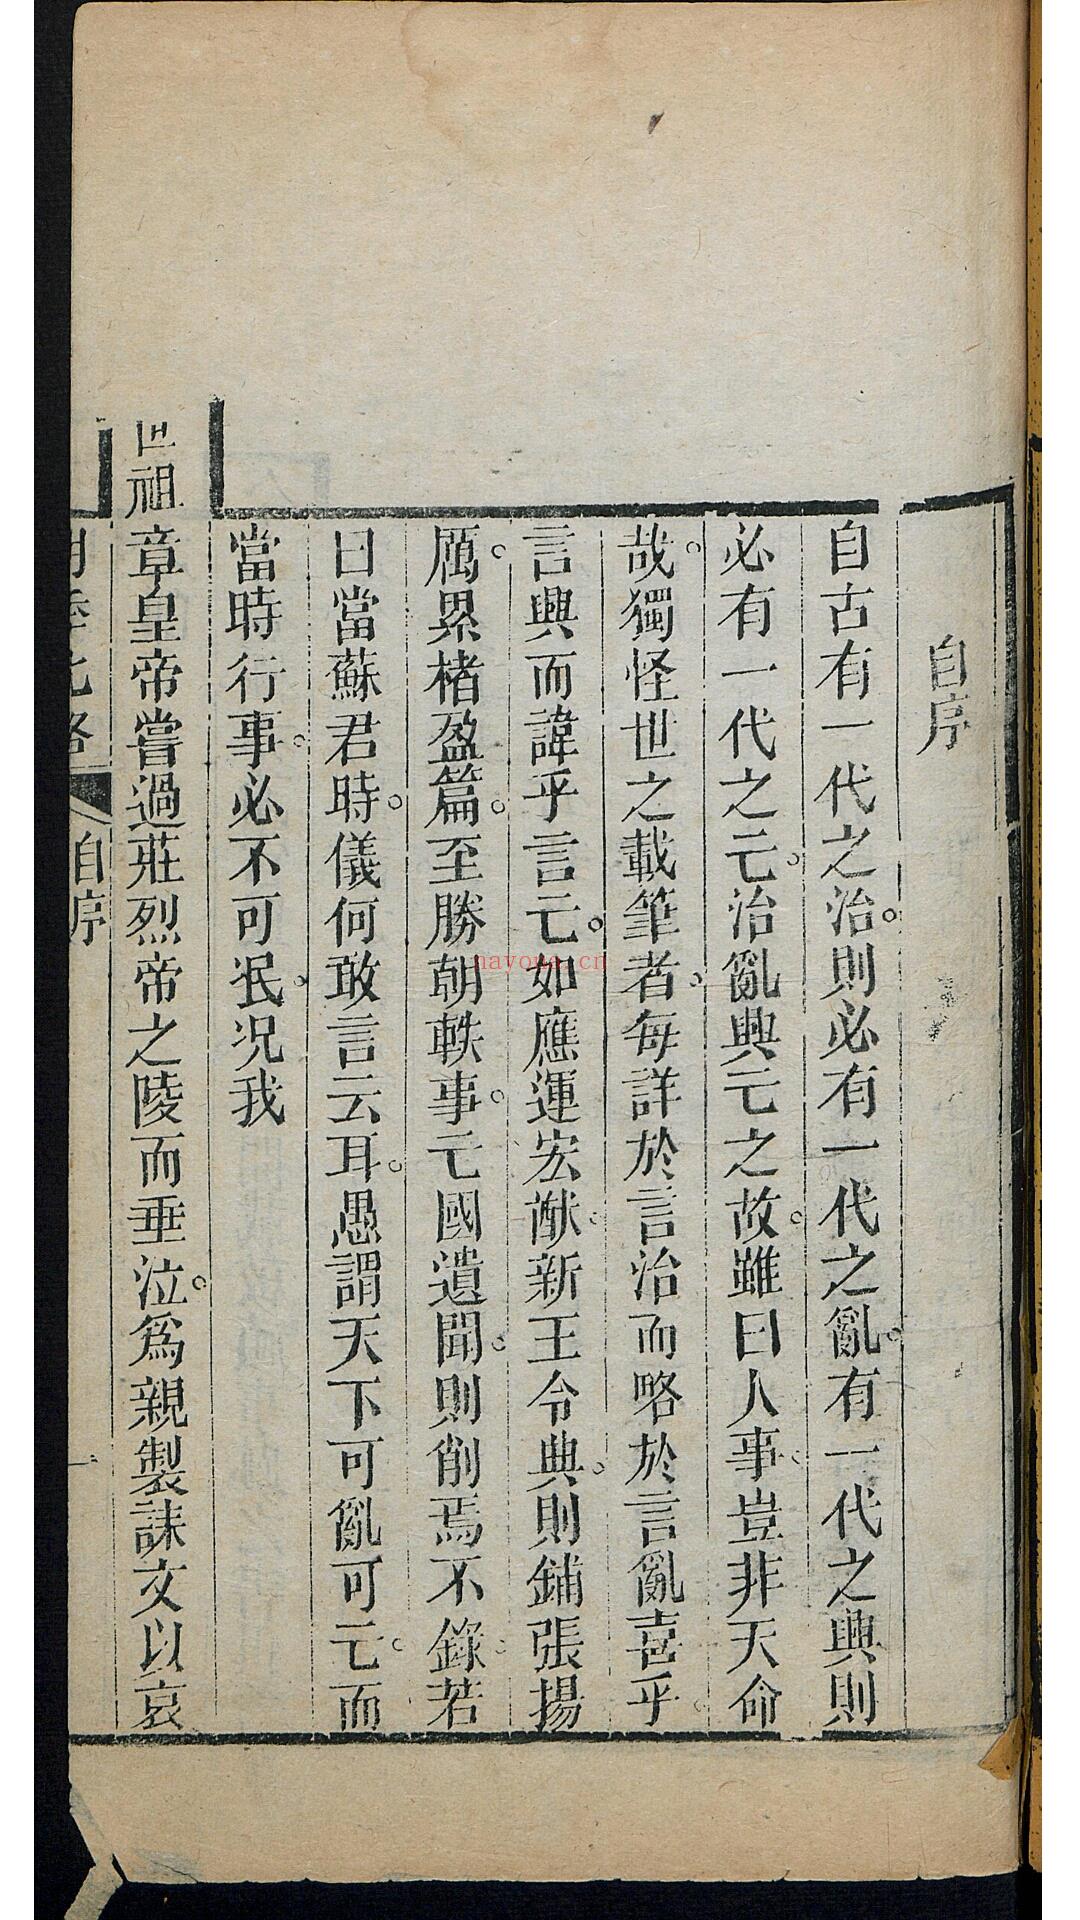 自序
自古有一代之治則必有一代之亂有一代之興則
必有一代之亡治亂興亡之故雖曰人事豈非天命
哉獨怪世之載筆者每詳於言治而略於言亂喜乎
言興而諱乎言亡如應運宏猷新王令典則鋪張揚
厲累楮盈篇至勝朝軼事亡國遺聞則削焉不錄若
曰當蘇君時儀何敢言云耳愚謂天下可亂可亡而
當時行事必不可泯况我
世祖章皇帝嘗過莊烈帝之陵而垂泣爲親製誄文以哀
明季北略 自序 一
nayona.cn